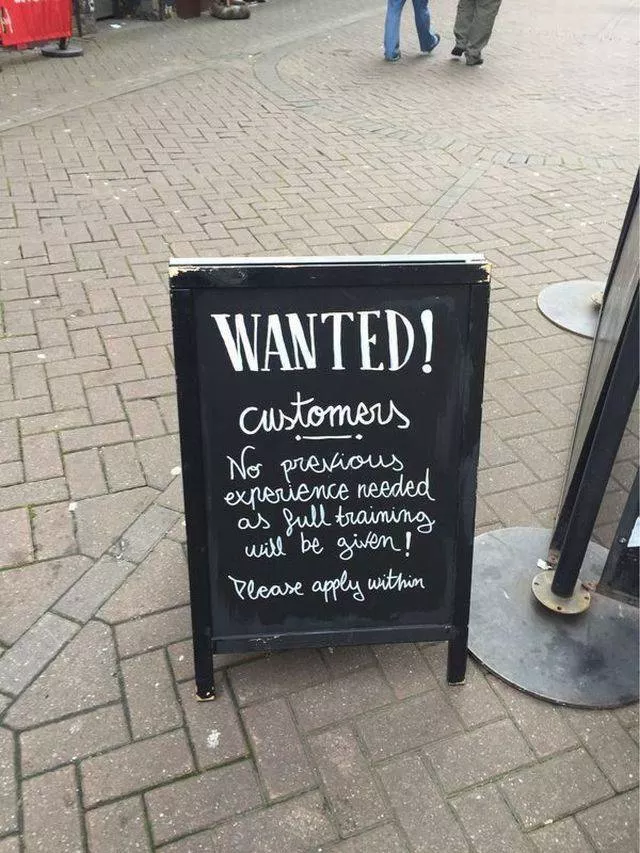 WANTED!
customers
No previous
experience needed
as full training
will be given!
Please apply within